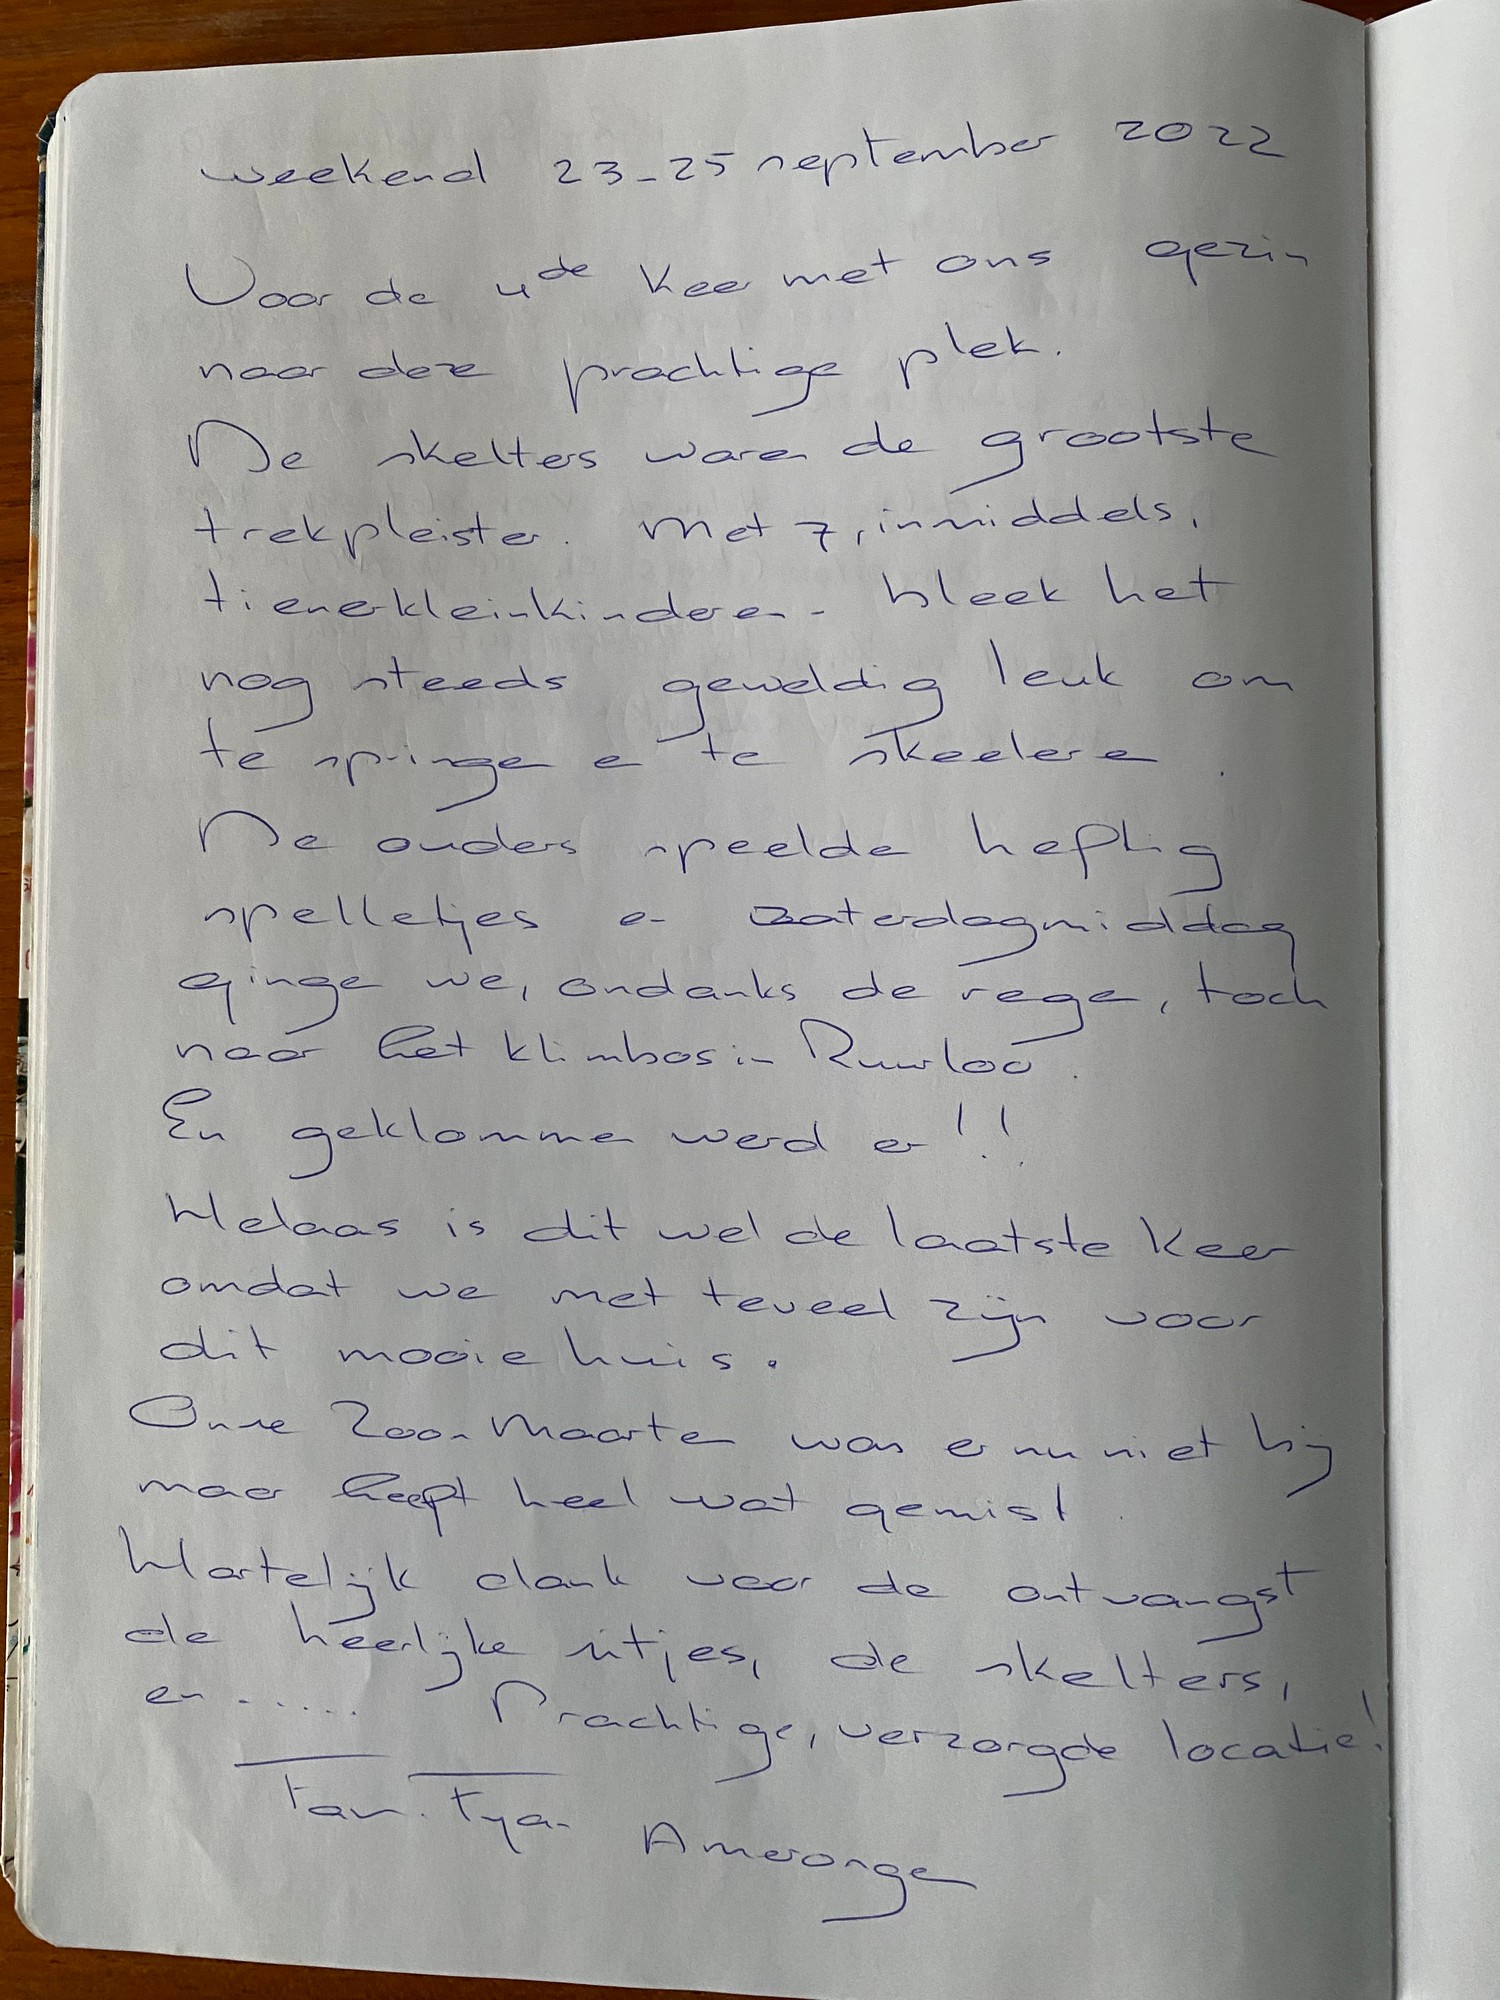 weekend 23-25 september 2022
Voor de 4de keer met ons gezin
naar deze prachtige plek.
De skelters waren de grootste
trekpleister. Met 7, inmiddels,
tienerkleinkinderen - bleek het
nog steeds geweldig leuk om
te springen en te skeeleren.
De ouders speelde heftig
spelletjes en zaterdagmiddag
gingen we, ondanks de regen, toch
naar het klimbos in Ruurloo.
En geklommen werd er!!
Helaas is dit wel de laatste keer
omdat we met teveel zijn voor
dit mooie huis.
Onze zoon Maarten was er nu niet bij
maar heeft heel wat gemist.
Hartelijk dank voor de ontvangst
de heerlijke ritjes, de skelters,
en ..... Prachtige, verzorgde locatie!
Fam. Amerongen